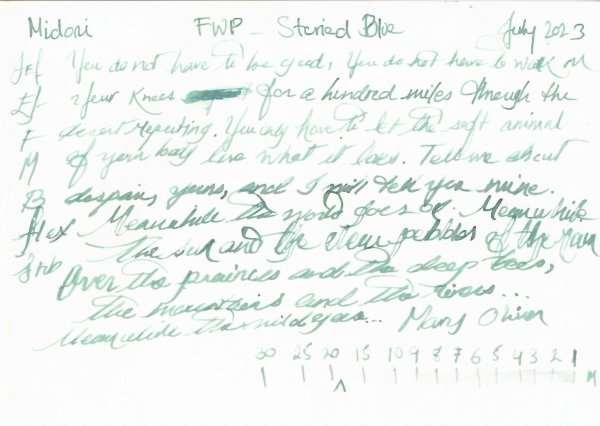 Midori FWP - Storied Blue July 2023
Jef You do not have to be good, You do not have to walk on
Ef your knees for a hundred miles through the
F desert repenting. You only have to let the soft animal
M of your body live what it loves. Tell me about
B despair, yours, and I will tell you mine.
flex Meanwhile the world goes on. Meanwhile
Stub the sun and the clear pebbles of the rain
Over the prairies and the deep trees,
the mountains and the rivers...
Meanwhile the wild geese... Mary Oliver
30 25 20 15 10 9 8 7 6 5 4 3 2 1
M